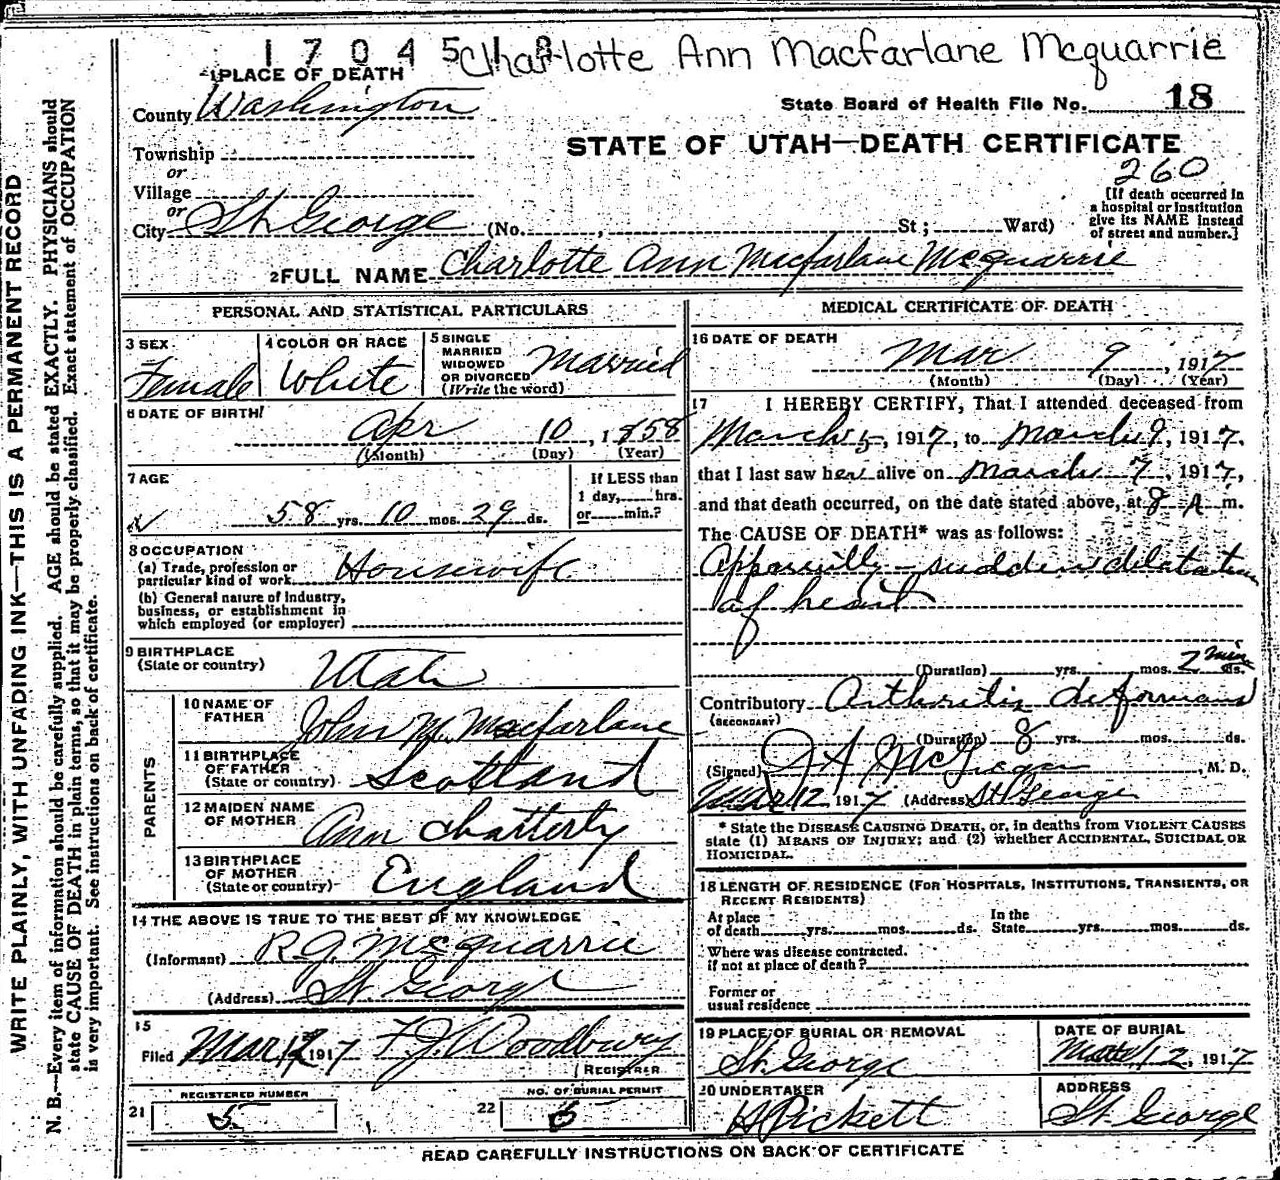 1 7 0 4 5 1 8 Charlotte Ann Macfarlane Mcquarrie
1 PLACE OF DEATH
County Washington
State Board of Health File No. 18
Township
or
Village
or
City St. George (No. , St ; Ward)
STATE OF UTAH—DEATH CERTIFICATE
260
[If death occurred in
a hospital or institution
give its NAME instead
of street and number.]
2 FULL NAME Charlotte Ann Macfarlane Mcquarrie
PERSONAL AND STATISTICAL PARTICULARS
3 SEX Female
4 COLOR OR RACE White
5 SINGLE
MARRIED
WIDOWED
OR DIVORCED
(Write the word) Married
6 DATE OF BIRTH
Apr 10, 1858
(Month) (Day) (Year)
7 AGE
58 yrs. 10 mos. 29 ds.
If LESS than
1 day, hrs.
or min.?
8 OCCUPATION
(a) Trade, profession or
particular kind of work Housewife
(b) General nature of industry,
business, or establishment in
which employed (or employer)
9 BIRTHPLACE
(State or country) Utah
PARENTS
10 NAME OF
FATHER John M. Macfarlane
11 BIRTHPLACE
OF FATHER
(State or country) Scotland
12 MAIDEN NAME
OF MOTHER Ann Chatterly
13 BIRTHPLACE
OF MOTHER
(State or country) England
14 THE ABOVE IS TRUE TO THE BEST OF MY KNOWLEDGE
(Informant) R.G. Mcquarrie
(Address) St. George
15
Filed Mar 12 1917 F.J. Woodbury
REGISTRER
REGISTERED NUMBER
21 5
NO. OF BURIAL PERMIT
22 5
MEDICAL CERTIFICATE OF DEATH
16 DATE OF DEATH
Mar 9, 1917
(Month) (Day) (Year)
17 I HEREBY CERTIFY, That I attended deceased from
March 5, 1917, to March 9, 1917,
that I last saw her alive on March 7, 1917,
and that death occurred, on the date stated above, at 8 A m.
The CAUSE OF DEATH* was as follows:
Apparently - sudden dilatation
of heart
(Duration) yrs. mos. 2 min ds.
Contributory Arthritis deformans
(SECONDARY)
(Duration) 8 yrs. mos. ds.
(Signed) J A McGregor, M. D.
Mar 12 1917 (Address) St. George
* State the DISEASE CAUSING DEATH, or, in deaths from VIOLENT CAUSES
state (1) MEANS OF INJURY; and (2) whether ACCIDENTAL, SUICIDAL OR
HOMICIDAL.
18 LENGTH OF RESIDENCE (FOR HOSPITALS, INSTITUTIONS, TRANSIENTS, OR
RECENT RESIDENTS)
At place
of death yrs. mos. ds.
In the
State yrs. mos. ds.
Where was disease contracted.
if not at place of death?
Former or
usual residence
19 PLACE OF BURIAL OR REMOVAL
St. George
DATE OF BURIAL
12, 1917
20 UNDERTAKER
Pickett
ADDRESS
St. George
READ CAREFULLY INSTRUCTIONS ON BACK OF CERTIFICATE
WRITE PLAINLY, WITH UNFADING INK—THIS IS A PERMANENT RECORD
N. B.—Every item of information should be carefully supplied. AGE should be stated EXACTLY. PHYSICIANS should
state CAUSE OF DEATH in plain terms, so that it may be properly classified. Exact statement of OCCUPATION
is very important. See instructions on back of certificate.